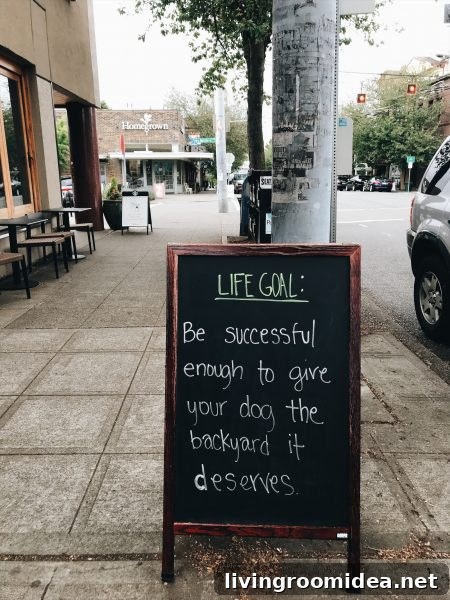 Homegrown
LIFE GOAL:
Be successful
enough to give
your dog the
backyard it
deserves.
livingroomidea.net